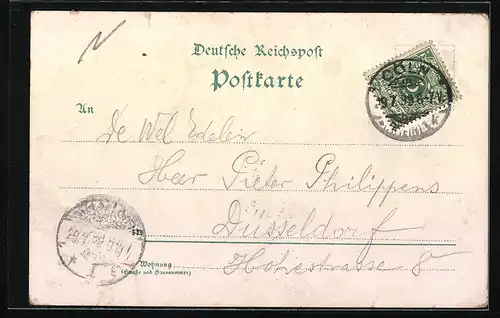 Deutsche Reichspost
Postkarte
CÖLN
An
De Wel Edelen
Heer Pieter Philippens
Düsseldorf
Hohestrasse 8
Wohnung
(Straße und Hausnummer)